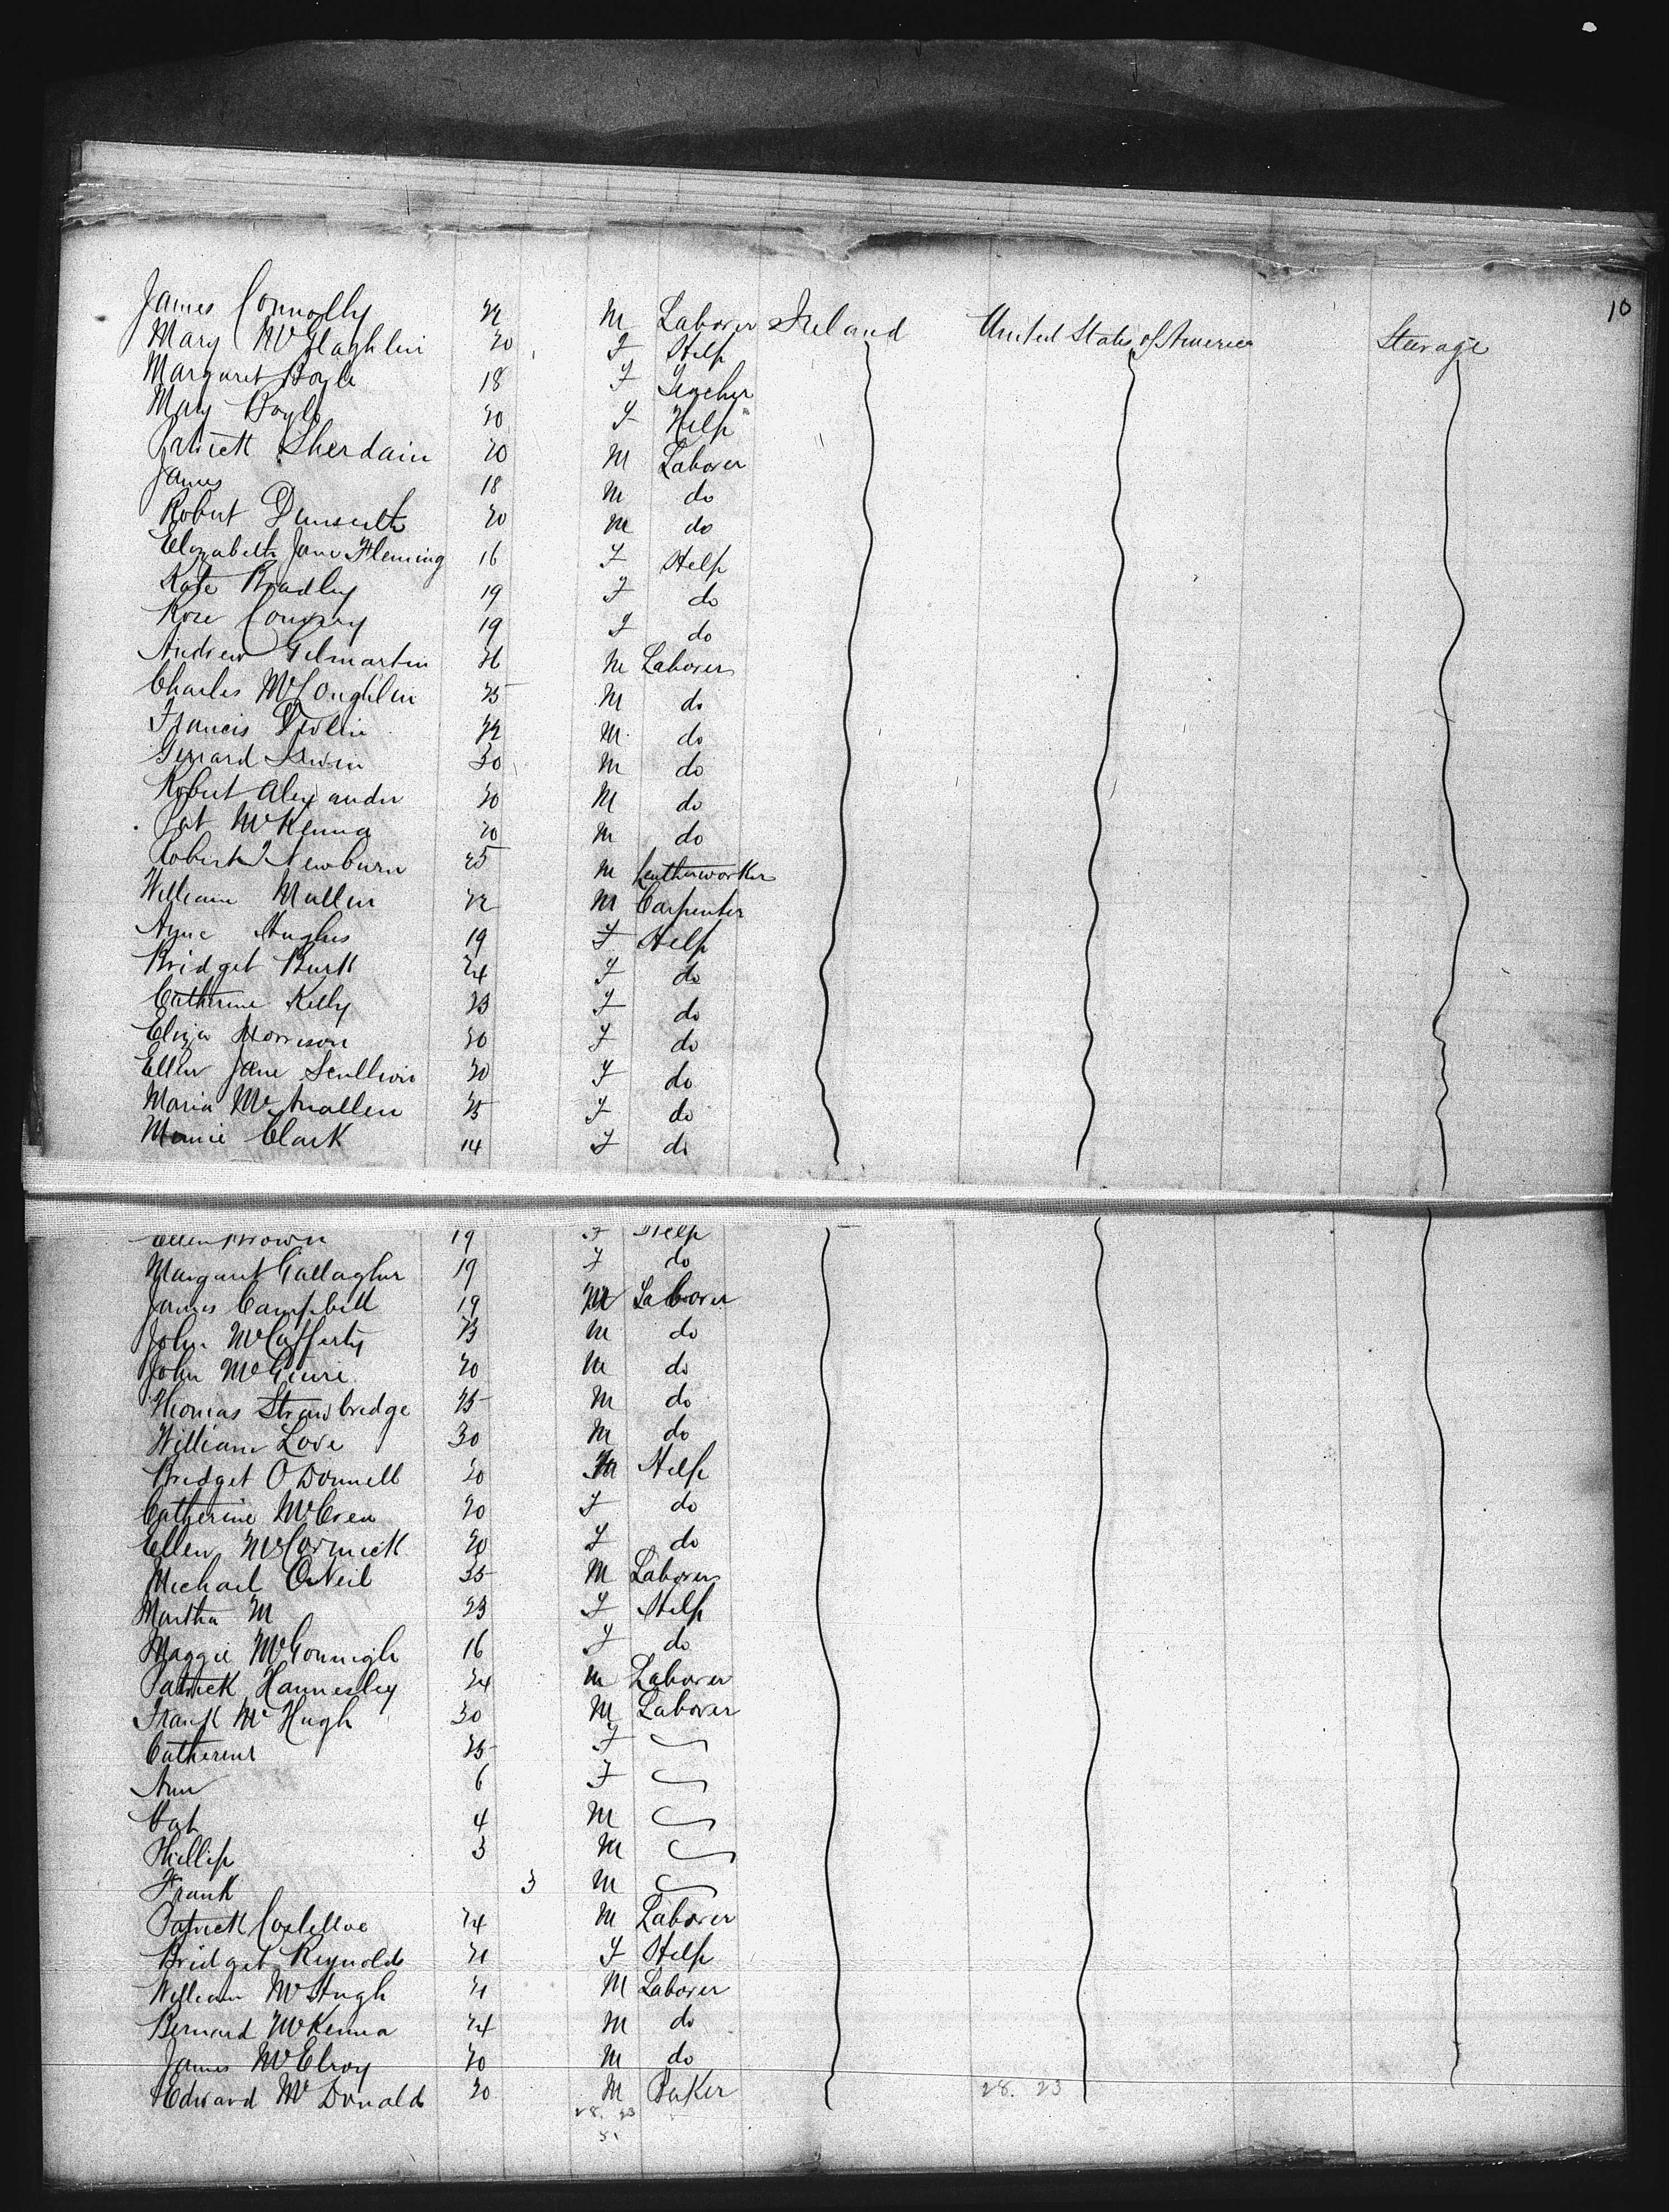 10
James Connolly 22 M Laborer Ireland United States of America Steerage
Mary McGlaghlin 20 F Help
Margaret Boyle 18 F Teacher
Mary Boyle 20 F Help
Patrick Sherdain 20 M Laborer
James 18 M do
Robert 20 M do
Elizabeth Jane Fleming 16 F Help
Kate Bradley 19 F do
Rose Conway 19 F do
Andrew Gilmartin M Laborer
Charles McLoughlin 25 M do
Francis Devlin 22 M do
Gerrard Irwin 30 M do
Robert Alexander 20 M do
Pat McKenna 20 M do
Robert Newburn 25 M Leatherworker
William Mullen 22 M Carpenter
Agne Hughes 19 F Help
Bridget Burk 24 F do
Catherine Kelly 23 F do
Eliza Morrison 20 F do
Ellen Jane Scullion 20 F do
Maria McAnallen 25 F do
Minnie Clark 14 F do
Ellen Brown 19 F Help
Margaret Gallagher 19 F do
James Campbell 19 M Laborer
John McCafferty 23 M do
John McGuire 20 M do
Thomas Strawbridge 25 M do
William Love 30 M do
Bridget O'Donnell 20 Help
Catherine McCrea 20 F do
Ellen McCormick 20 F do
Michael O'Neil 35 M Laborer
Martha M 23 F Help
Maggie McGonnigle 16 F do
Patrick Hannesley 24 M Laborer
Frank McHugh 30 M Laborer
Catherine 25 F
Ann 6 F
Pat 4 M
Phillip 3 M
Frank 3 M
Patrick Costelloe 24 M Laborer
Bridget Reynolds 21 F Help
William McHugh 21 M Laborer
Bernard McKenna 24 M do
James McElroy 20 M do
Edward McDonald 20 M Baker
28. 23 28. 23
51